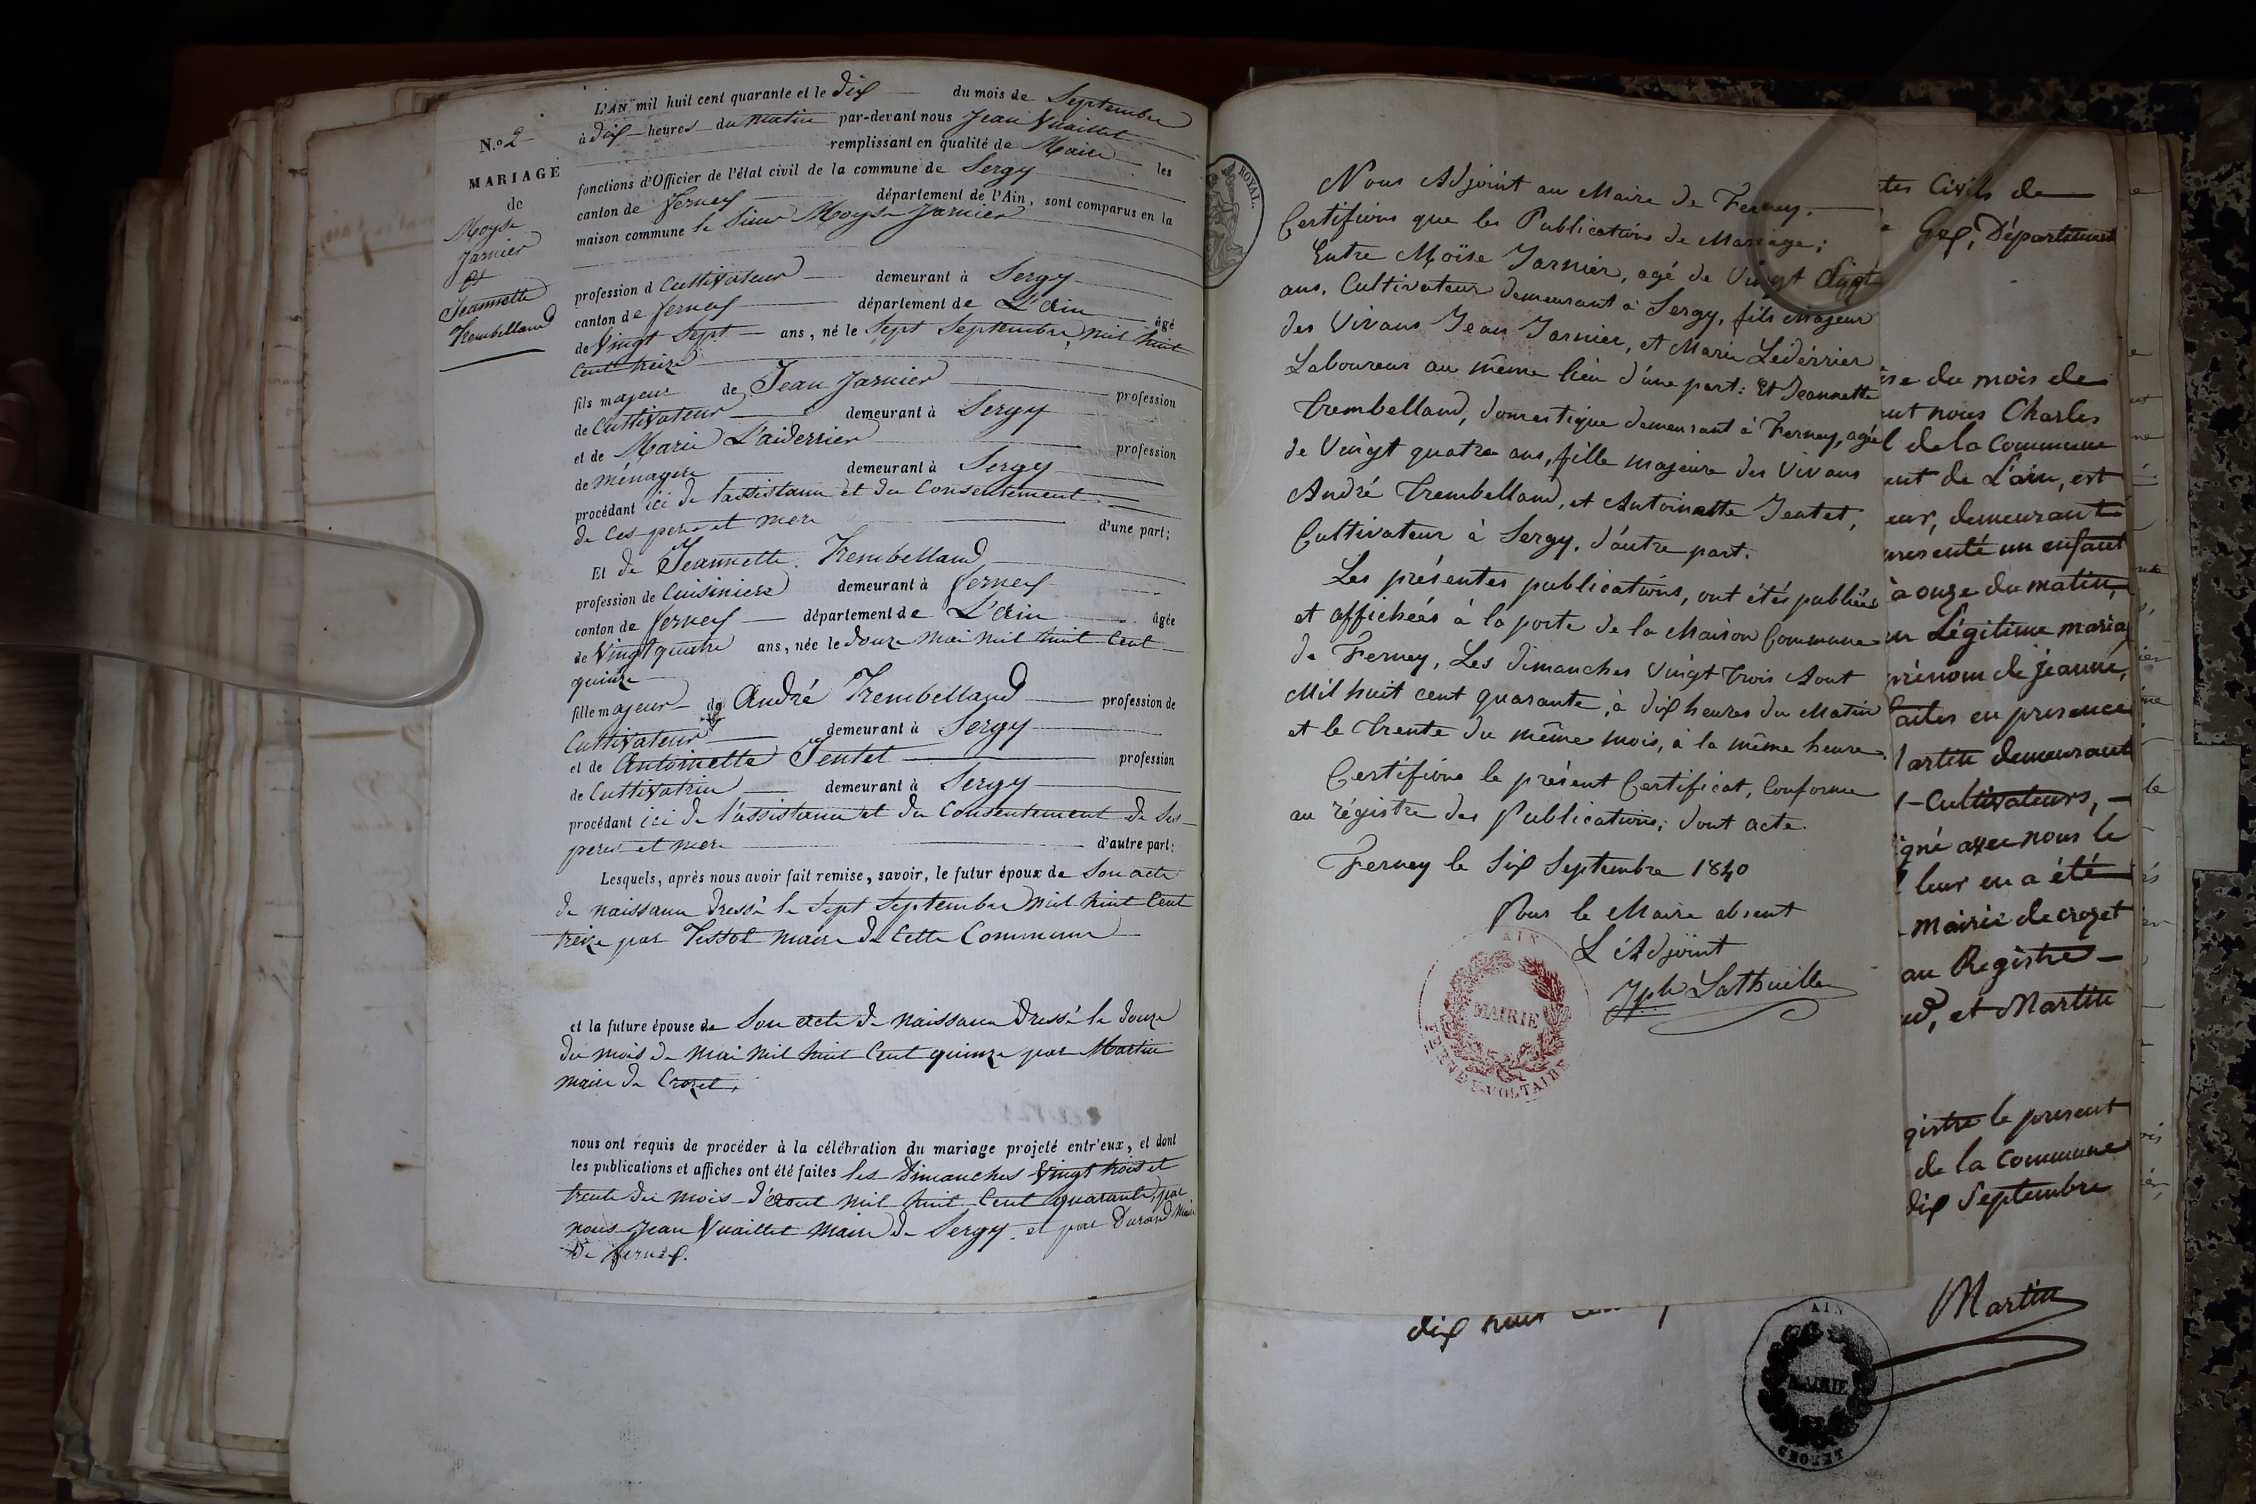 L'AN mil huit cent quarante et le dix du mois de Septembre
à dix heures du matin par-devant nous Jean Vuaillet
remplissant en qualité de Maire les
fonctions d'Officier de l'état civil de la commune de Sergy
canton de ferney département de l'Ain, sont comparus en la
maison commune le Sieur Moyse Jarnier
N.o 2
MARIAGE
de
Moyse
Jarnier
et
Jeannette
Trembelland
profession d Cultivateur demeurant à Sergy
canton de ferney département de L'Ain âgé
de Vingt Sept ans, né le Sept Septembre, mil huit
Cent treize
fils majeur de Jean Jarnier profession
de Cultivateur demeurant à Sergy
et de Marie L'aiderrier profession
de ménagere demeurant à Sergy
procédant ici de l'assistance et du Consentement
de Ces pere et mere d'une part;
Et de Jeannette Trembelland
profession de Cuisiniere demeurant à ferney
conton de ferney département de L'Ain âgée
de Vingt quatre ans, née le douze mai mil huit Cent
quinze
fille majeur de André Trembelland profession de
Cultivateur demeurant à Sergy
et de Antoinette Jentet profession
de Cultivatrice demeurant à Sergy
procédant ici de l'assistance et du Consentement de Ses
peres et mere d'autre part:
Lesquels, après nous avoir fait remise, savoir, le futur époux de Son acte
de naissance dressé le Sept Septembre mil huit Cent
treize par Tissot maire de Cette Commune
et la future épouse de Son acte de naissance dressé le douze
du mois de mai mil huit Cent quinze par Martin
maire de Crozet,
nous ont requis de procéder à la célébration du mariage projeté entr'eux, et dont
les publications et affiches ont été faites les Dimanches Vingt trois et
trente du mois d'Aout mil huit Cent quarante, par
nous Jean Vuaillet maire de Sergy et par Durand Maire
de ferney.
ROYAL.
Nous Adjoint au Maire de Ferney.
Certifions que les Publications de Mariage;
Entre Moïse Jarnier, agé de Vingt Sept
ans, Cultivateur demeurant à Sergy, fils majeur
des Vivans Jean Jarnier, et Marie Lédérrier
Laboureur au même lieu d'une part: Et Jeannette
Trembelland, domestique demeurant à Ferney, agée
de Vingt quatre ans, fille majeure des Vivans
André Trembelland, et Antoinette Jentet,
Cultivateur à Sergy, d'autre part.
Les présentes publications, ont étés publiées
et affichées à la porte de la Maison Commune
de Ferney, Les dimanches Vingt trois Aout
Mil huit cent quarante, à dix heures du Matin
et le trente du même mois, à la même heure.
Certifions le présent Certificat, Conforme
au régistre des Publications; dont acte.
Ferney le Six Septembre 1840
Pour le Maire absent
L'Adjoint
Jph Lathuille
AIN
MAIRIE
FERNEY-VOLTAIRE
tes Civils de
Gex, Département
du mois de
nous Charles
de la Commune
de L'ain, est
demeurant
un enfant
à onze du matin,
Légitime maria
prénom de jeanne,
faites en presence
demeurant
Cultivateurs,
avec nous le
leur en a été
mairie de crozet
au Registre
et Martin
le present
de la Commune
dix Septembre
dix huit
Martin
AIN
MAIRIE